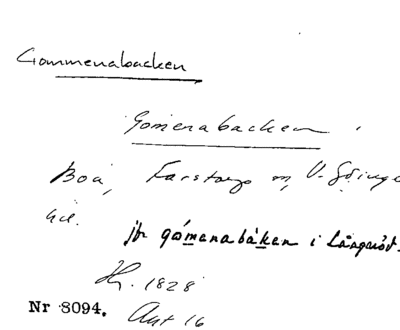 Gommenabacken
Gomenabacken
Boa, Farstorps sn, V. Göinge
hd.
jfr gómenabàken i Långaröd.
Hr. 1828
Nr 8094. Ant 16